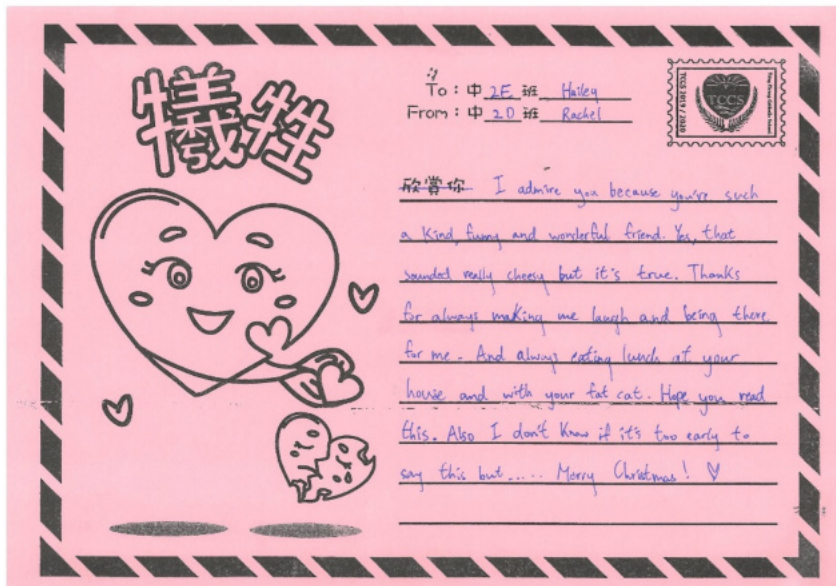 犧牲
To：中 2E 班 Hailey
From：中 2D 班 Rachel
TCCS
TCCS 2019 / 2020
欣賞你 I admire you because you're such
a kind, funny and wonderful friend. Yes, that
sounded really cheesy but it's true. Thanks
for always making me laugh and being there
for me. And always eating lunch at your
house and with your fat cat. Hope you read
this. Also I don't know if it's too early to
say this but..... Merry Christmas! ♡